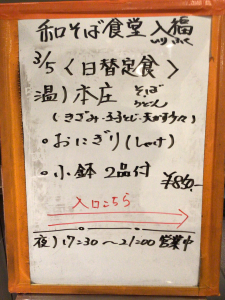 和そば食堂 入福
3/5〈日替定食〉
温）本庄 そば うどん
(きざみ・玉子とじ・天かす
・おにぎり（しゃけ）
・小鉢 2品付 ¥850-
入口こちら
夜）17:30〜21:00 営業中